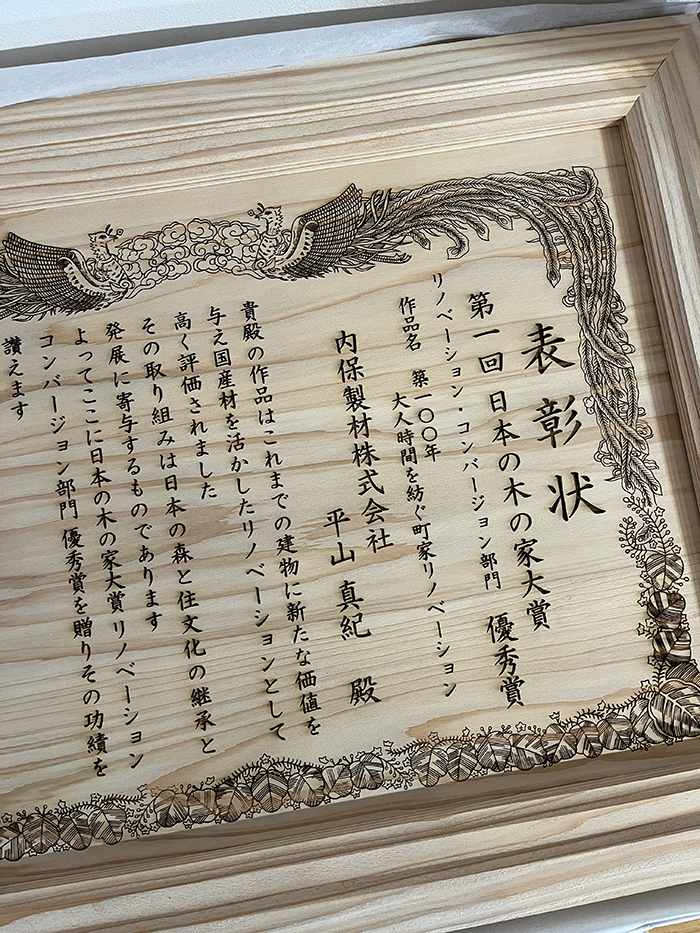 表彰状
第一回 日本の木の家大賞 優秀賞
リノベーション・コンバージョン部門
作品名 築一〇〇年
大人時間を紡ぐ町家リノベーション
内保製材株式会社
平山 真紀 殿
貴殿の作品はこれまでの建物に新たな価値を
与え国産材を活かしたリノベーションとして
高く評価されました
その取り組みは日本の森と住文化の継承と
発展に寄与するものであります
よってここに日本の木の家大賞リノベーション
コンバージョン部門 優秀賞を贈りその功績を
讃えます